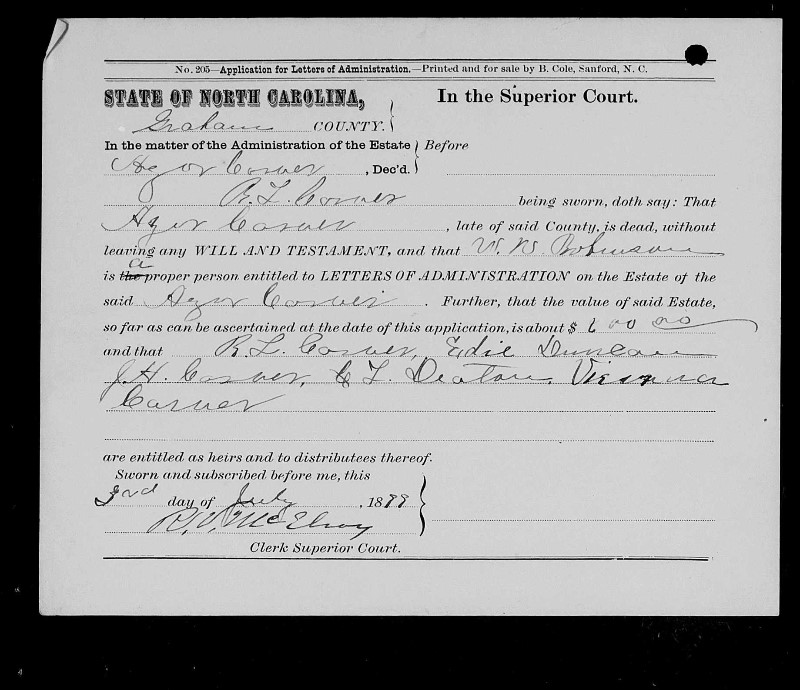 No. 205—Application for Letters of Administration.—Printed and for sale by B. Cole, Sanford, N. C.
STATE OF NORTH CAROLINA,
In the Superior Court.
Graham COUNTY.
In the matter of the Administration of the Estate
Before
Azor Carver, Dec'd.
R. L. Carver being sworn, doth say: That
Azor Carver, late of said County, is dead, without
leaving any WILL AND TESTAMENT, and that W. W. Robinson
a
is the proper person entitled to LETTERS OF ADMINISTRATION on the Estate of the
said Azor Carver. Further, that the value of said Estate,
so far as can be ascertained at the date of this application, is about $ 600 00
and that R. L. Carver, Edie Duncan
J. H. Carver, L. Deaton,
Carver
are entitled as heirs and to distributees thereof.
Sworn and subscribed before me, this
3rd day of July, 1899
R. V. McElroy
Clerk Superior Court.